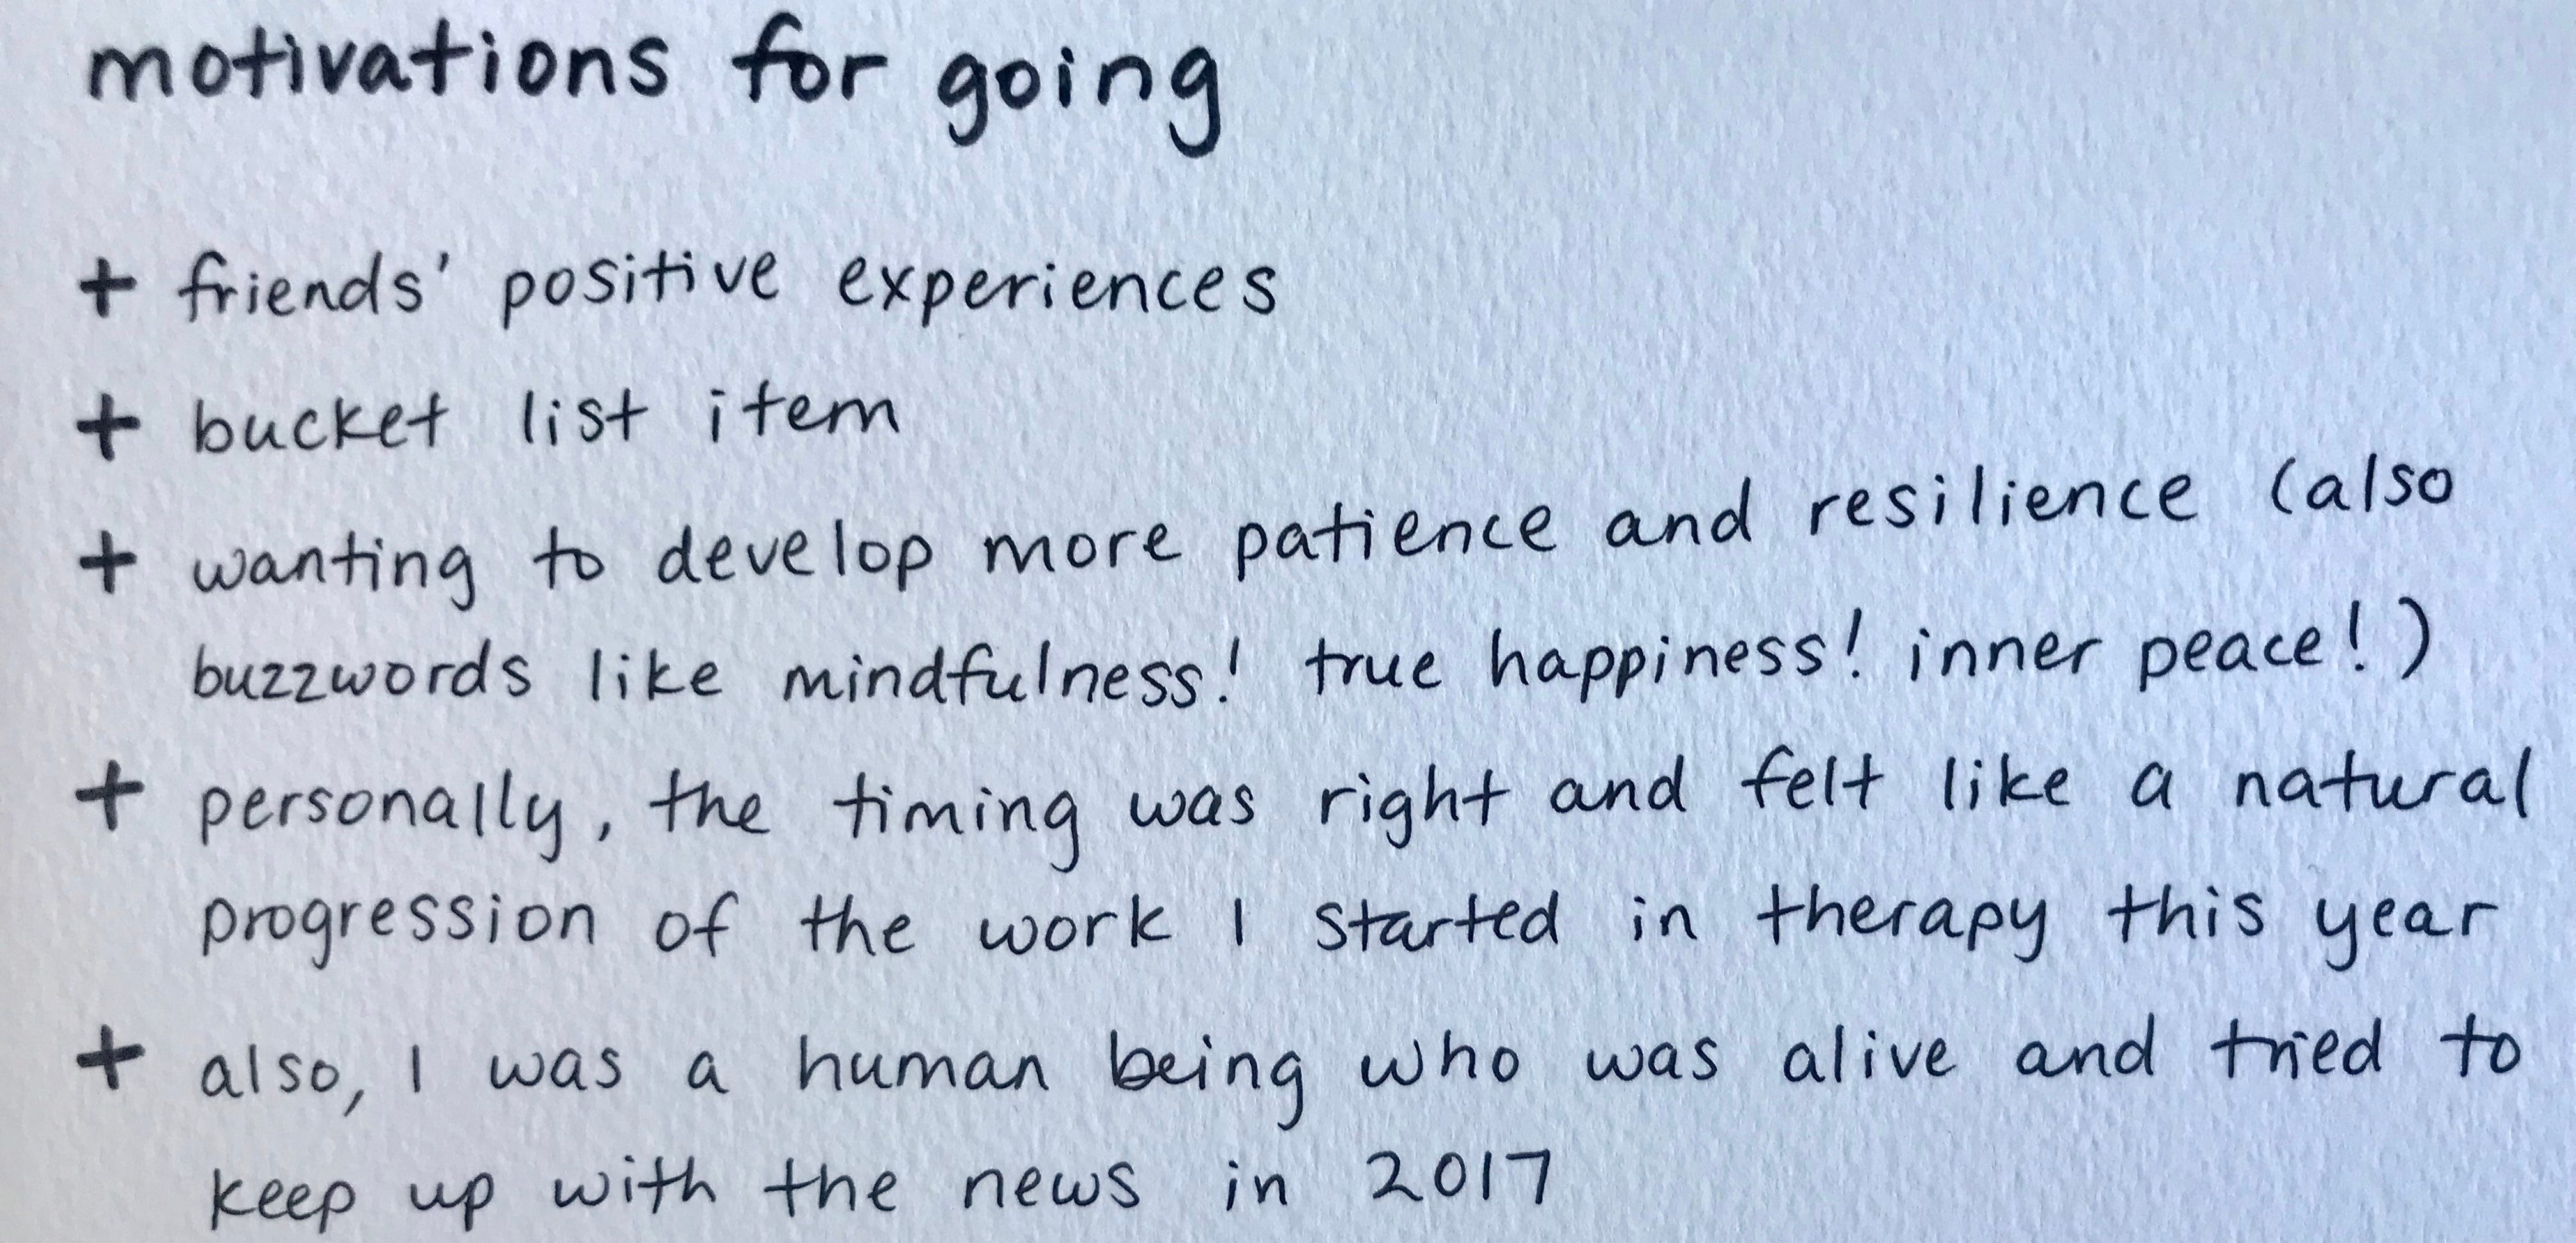 motivations for going
+ friends' positive experiences
+ bucket list item
+ wanting to develop more patience and resilience (also
buzzwords like mindfulness! true happiness! inner peace!)
+ personally, the timing was right and felt like a natural
progression of the work I started in therapy this year
+ also, I was a human being who was alive and tried to
keep up with the news in 2017